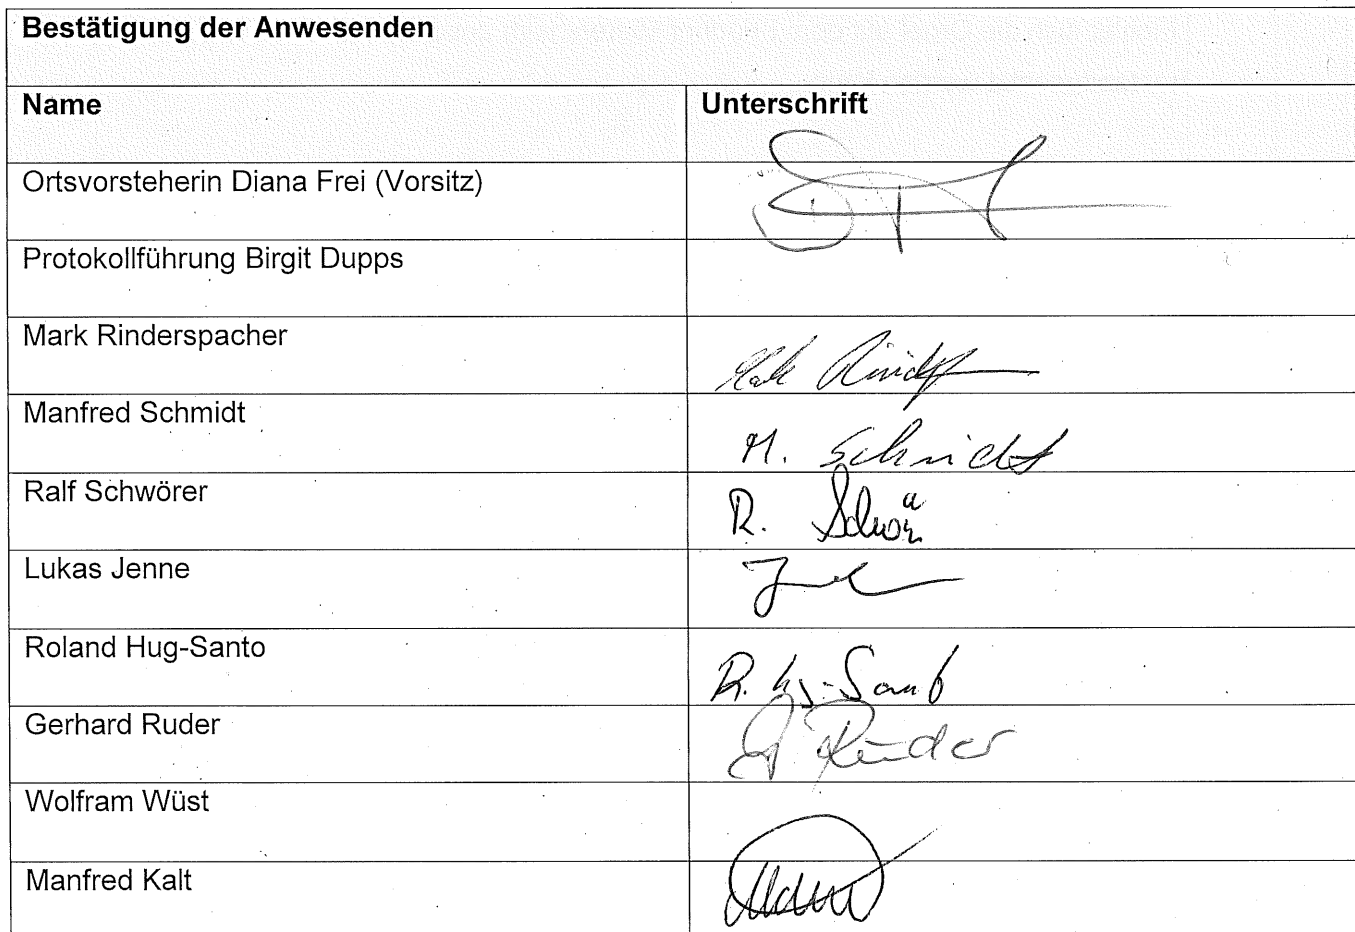 Bestätigung der Anwesenden
Name Unterschrift
Ortsvorsteherin Diana Frei (Vorsitz)
Protokollführung Birgit Dupps
Mark Rinderspacher
Manfred Schmidt M. Schmidt
Ralf Schwörer R.
Lukas Jenne
Roland Hug-Santo R.
Gerhard Ruder G. Ruder
Wolfram Wüst
Manfred Kalt